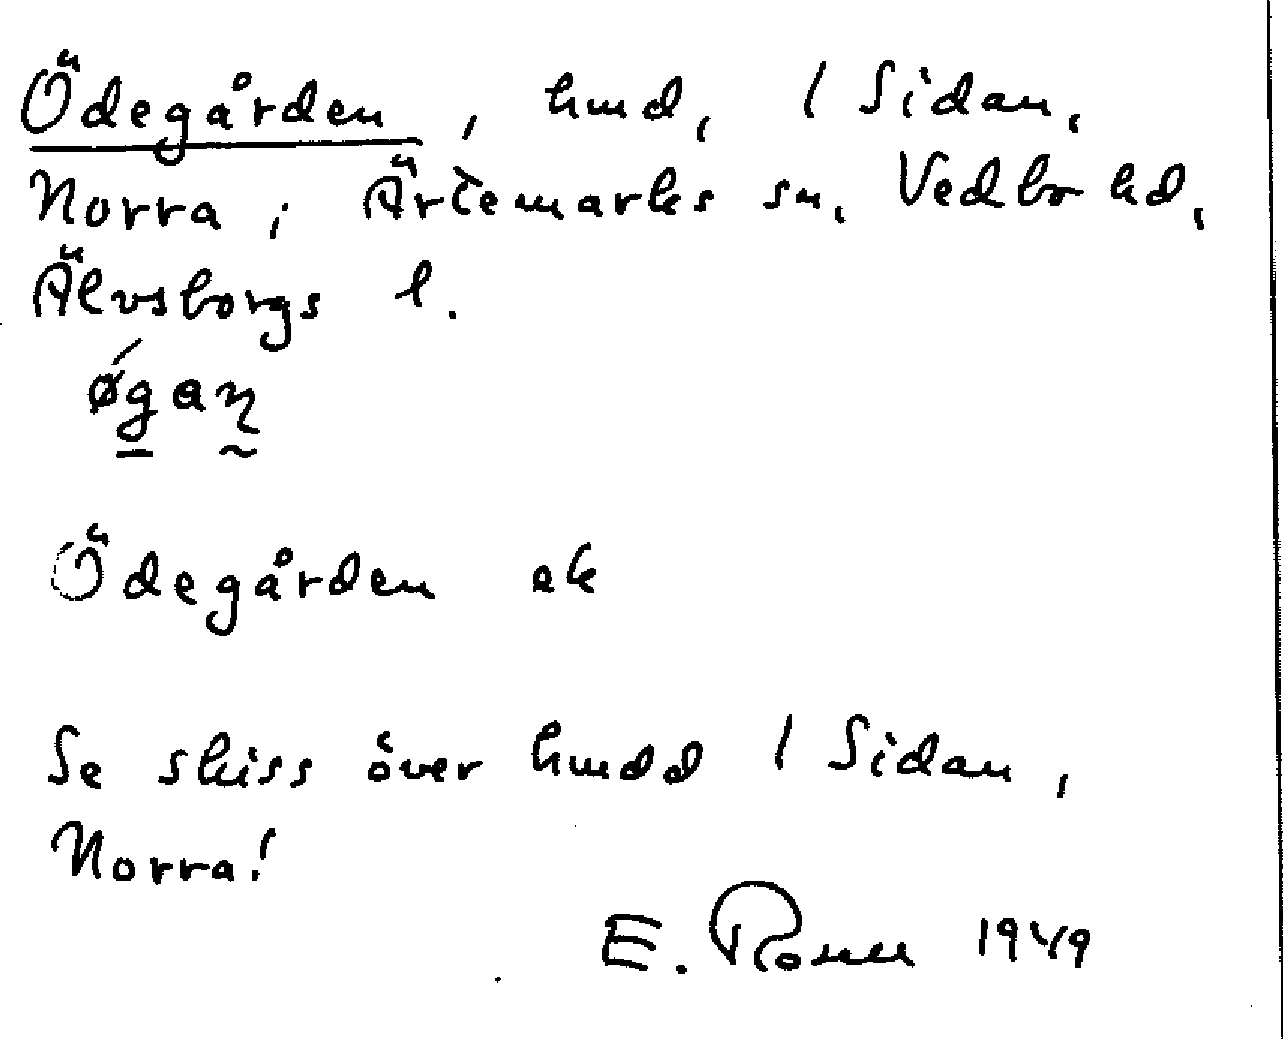 Ödegården, hmd, 1 Sidan,
Norra, Ärtemarks sn, Vedbo hd,
Älvsborgs l.
ǿgaṉ
Ödegården ek
Se skiss över hmdd 1 Sidan,
Norra!
E. Rosell 1949